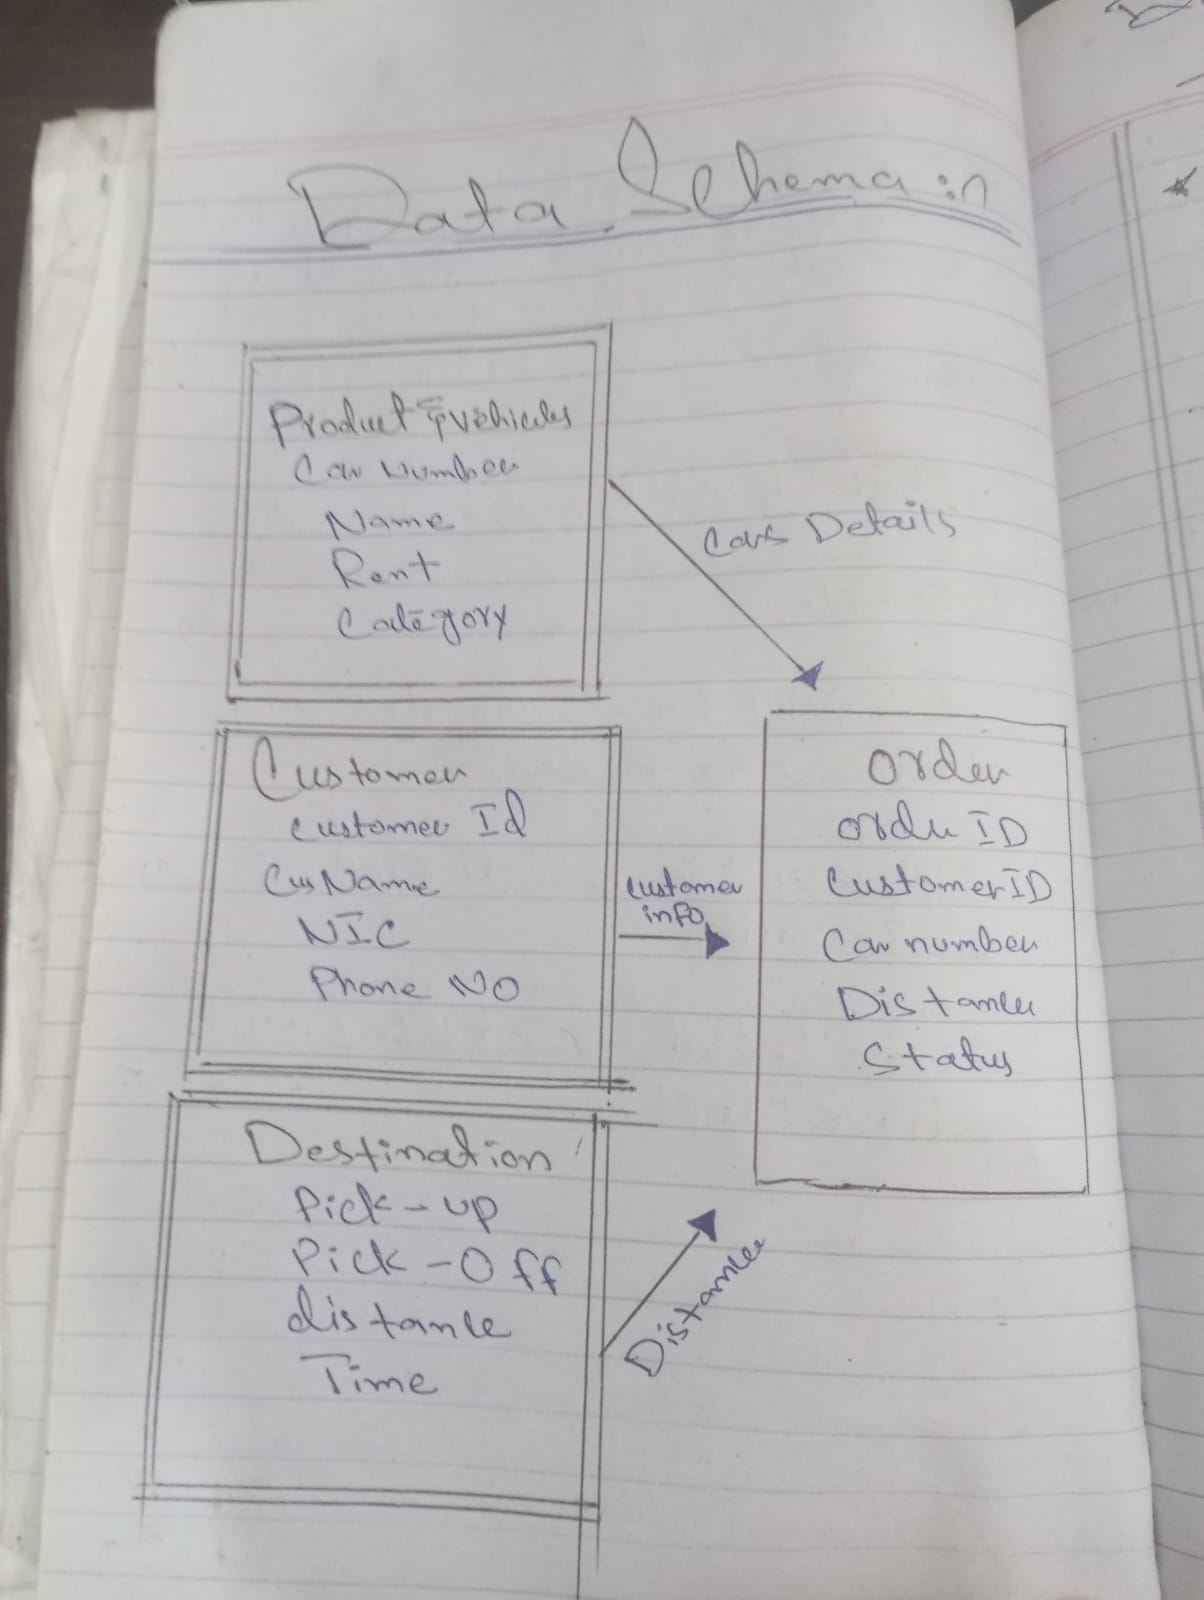 Data Schema :
Product vehicles
Car Number
Name
Rent
Category
Cars Details
Customer
Customer Id
Cus Name
NIC
Phone NO
Customer
info
Order
Order ID
Customer ID
Car number
Distance
Status
Destination
Pick-up
Pick-Off
distance
Time
Distance